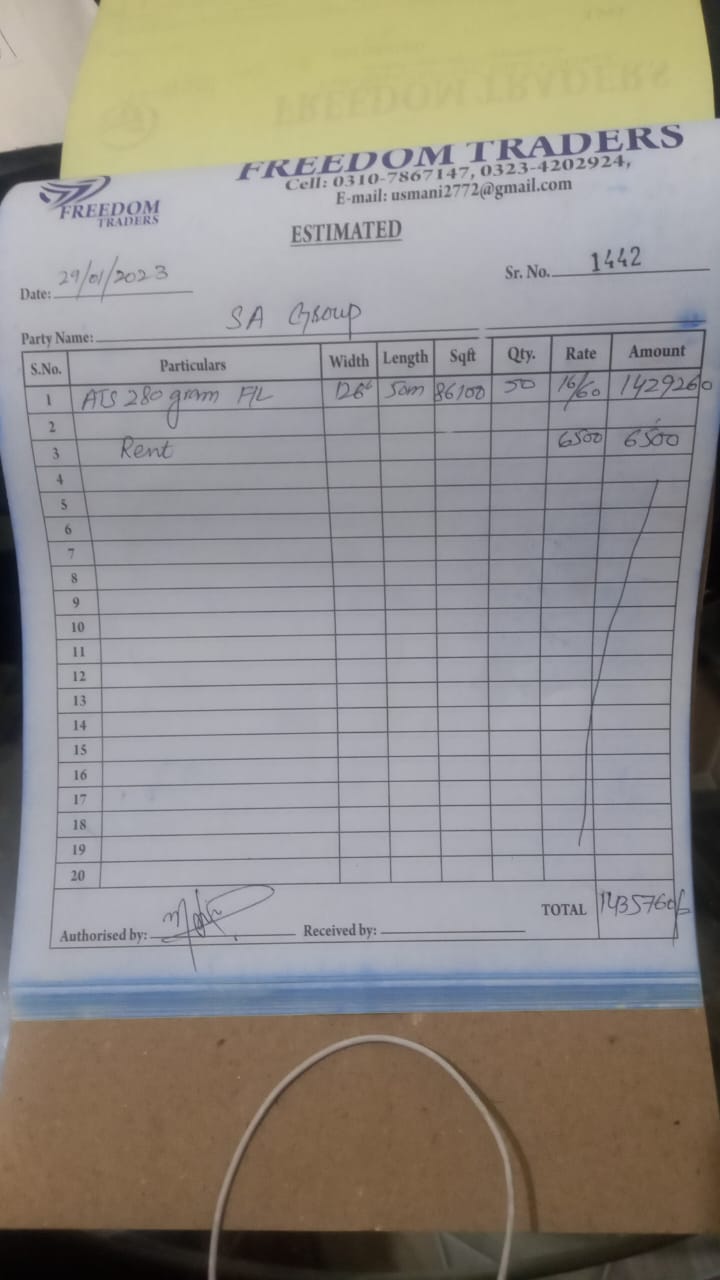 FREEDOM TRADERS
FREEDOM TRADERS
Cell: 0310-7867147, 0323-4202924,
E-mail: usmani2772@gmail.com
FREEDOM
TRADERS
ESTIMATED
Date: 29/01/2023 Sr. No. 1442
Party Name: SA Group
S.No. Particulars Width Length Sqft Qty. Rate Amount
1 ATS 280 gram F/L 126" 50m 86100 50 16/60 1429260
2
3 Rent 6500 6500
4
5
6
7
8
9
10
11
12
13
14
15
16
17
18
19
20
TOTAL 1435760/
Authorised by: Received by: